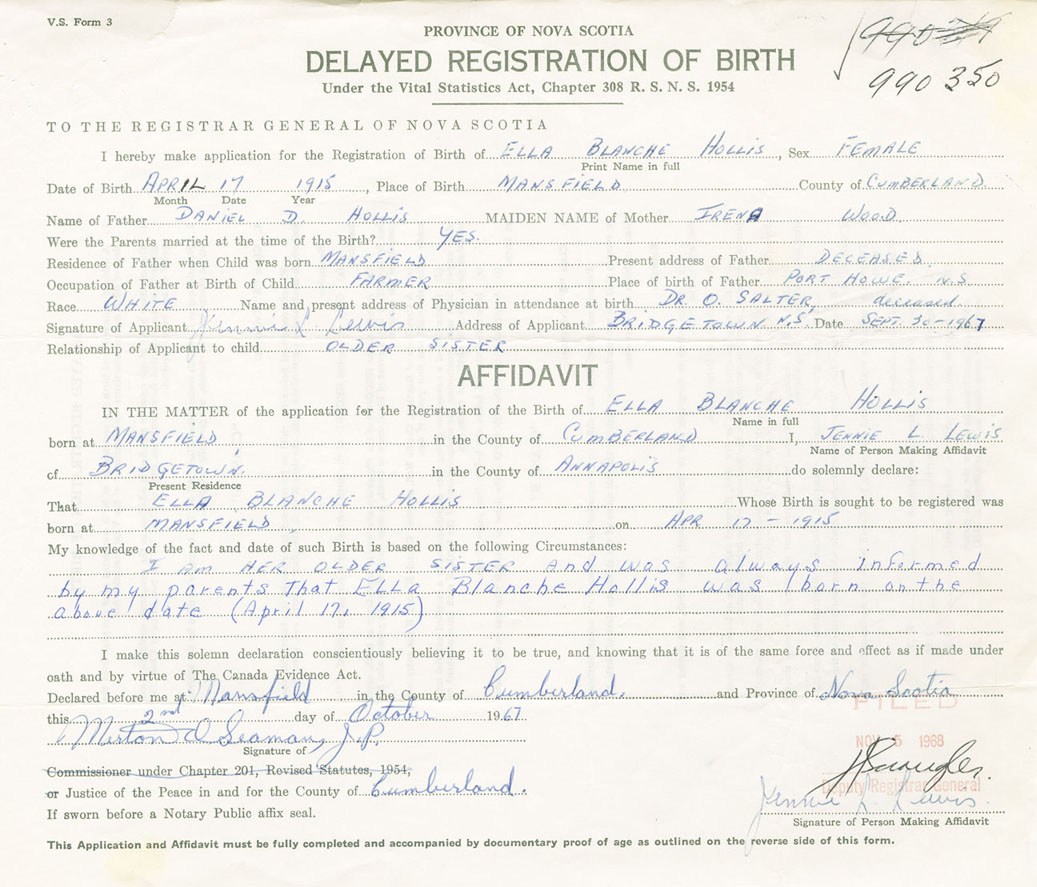 V.S. Form 3
PROVINCE OF NOVA SCOTIA
DELAYED REGISTRATION OF BIRTH
Under the Vital Statistics Act, Chapter 308 R. S. N. S. 1954
990 350
TO THE REGISTRAR GENERAL OF NOVA SCOTIA
I hereby make application for the Registration of Birth of ELLA BLANCHE HOLLIS, Sex FEMALE
Print Name in full
Date of Birth APRIL 17 1915, Place of Birth MANSFIELD County of CUMBERLAND
Month Date Year
Name of Father DANIEL D HOLLIS MAIDEN NAME of Mother IRENA WOOD
Were the Parents married at the time of the Birth? YES.
Residence of Father when Child was born MANSFIELD Present address of Father DECEASED
Occupation of Father at Birth of Child FARMER Place of birth of Father PORT HOWE, N.S.
Race WHITE Name and present address of Physician in attendance at birth DR. O. SALTER, deceased
Signature of Applicant Jennie L Lewis Address of Applicant BRIDGETOWN N.S. Date SEPT. 30-1967
Relationship of Applicant to child OLDER SISTER
AFFIDAVIT
IN THE MATTER of the application for the Registration of the Birth of ELLA BLANCHE HOLLIS
Name in full
born at MANSFIELD in the County of CUMBERLAND I, JENNIE L LEWIS
Name of Person Making Affidavit
of BRIDGETOWN. in the County of ANNAPOLIS do solemnly declare:
Present Residence
That ELLA BLANCHE HOLLIS Whose Birth is sought to be registered was
born at MANSFIELD on APR 17 - 1915
My knowledge of the fact and date of such Birth is based on the following Circumstances:
I AM HER OLDER SISTER AND WAS always informed
by my parents that ELLA Blanche Hollis was born on the
above date (April 17, 1915)
I make this solemn declaration conscientiously believing it to be true, and knowing that it is of the same force and effect as if made under
oath and by virtue of The Canada Evidence Act.
Declared before me at Mansfield in the County of Cumberland. and Province of Nova Scotia
this 2nd day of October 1967
FILED
Merton D Seaman, J.P.
Signature of
NOV 5 1968
Commissioner under Chapter 201, Revised Statutes, 1954,
Deputy Registrar General
or Justice of the Peace in and for the County of Cumberland.
Jennie L. Lewis.
If sworn before a Notary Public affix seal.
Signature of Person Making Affidavit
This Application and Affidavit must be fully completed and accompanied by documentary proof of age as outlined on the reverse side of this form.